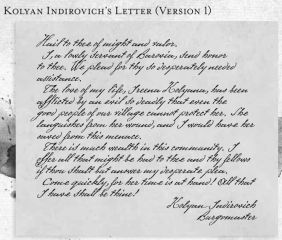 KOLYAN INDIROVICH'S LETTER (VERSION 1)
Hail to thee of might and valor.
I, a lowly servant of Barovia, send honor
to thee. We plead for thy so desperately needed
assistance.
The love of my life, Ireena Kolyana, has been
afflicted by an evil so deadly that even the
good people of our village cannot protect her. She
languishes from her wound, and I would have her
saved from this menace.
There is much wealth in this community. I
offer all that might be had to thee and thy fellows
if thou shalt but answer my desperate plea.
Come quickly, for her time is at hand! All that
I have shall be thine!
Kolyan Indirovich
Burgomaster